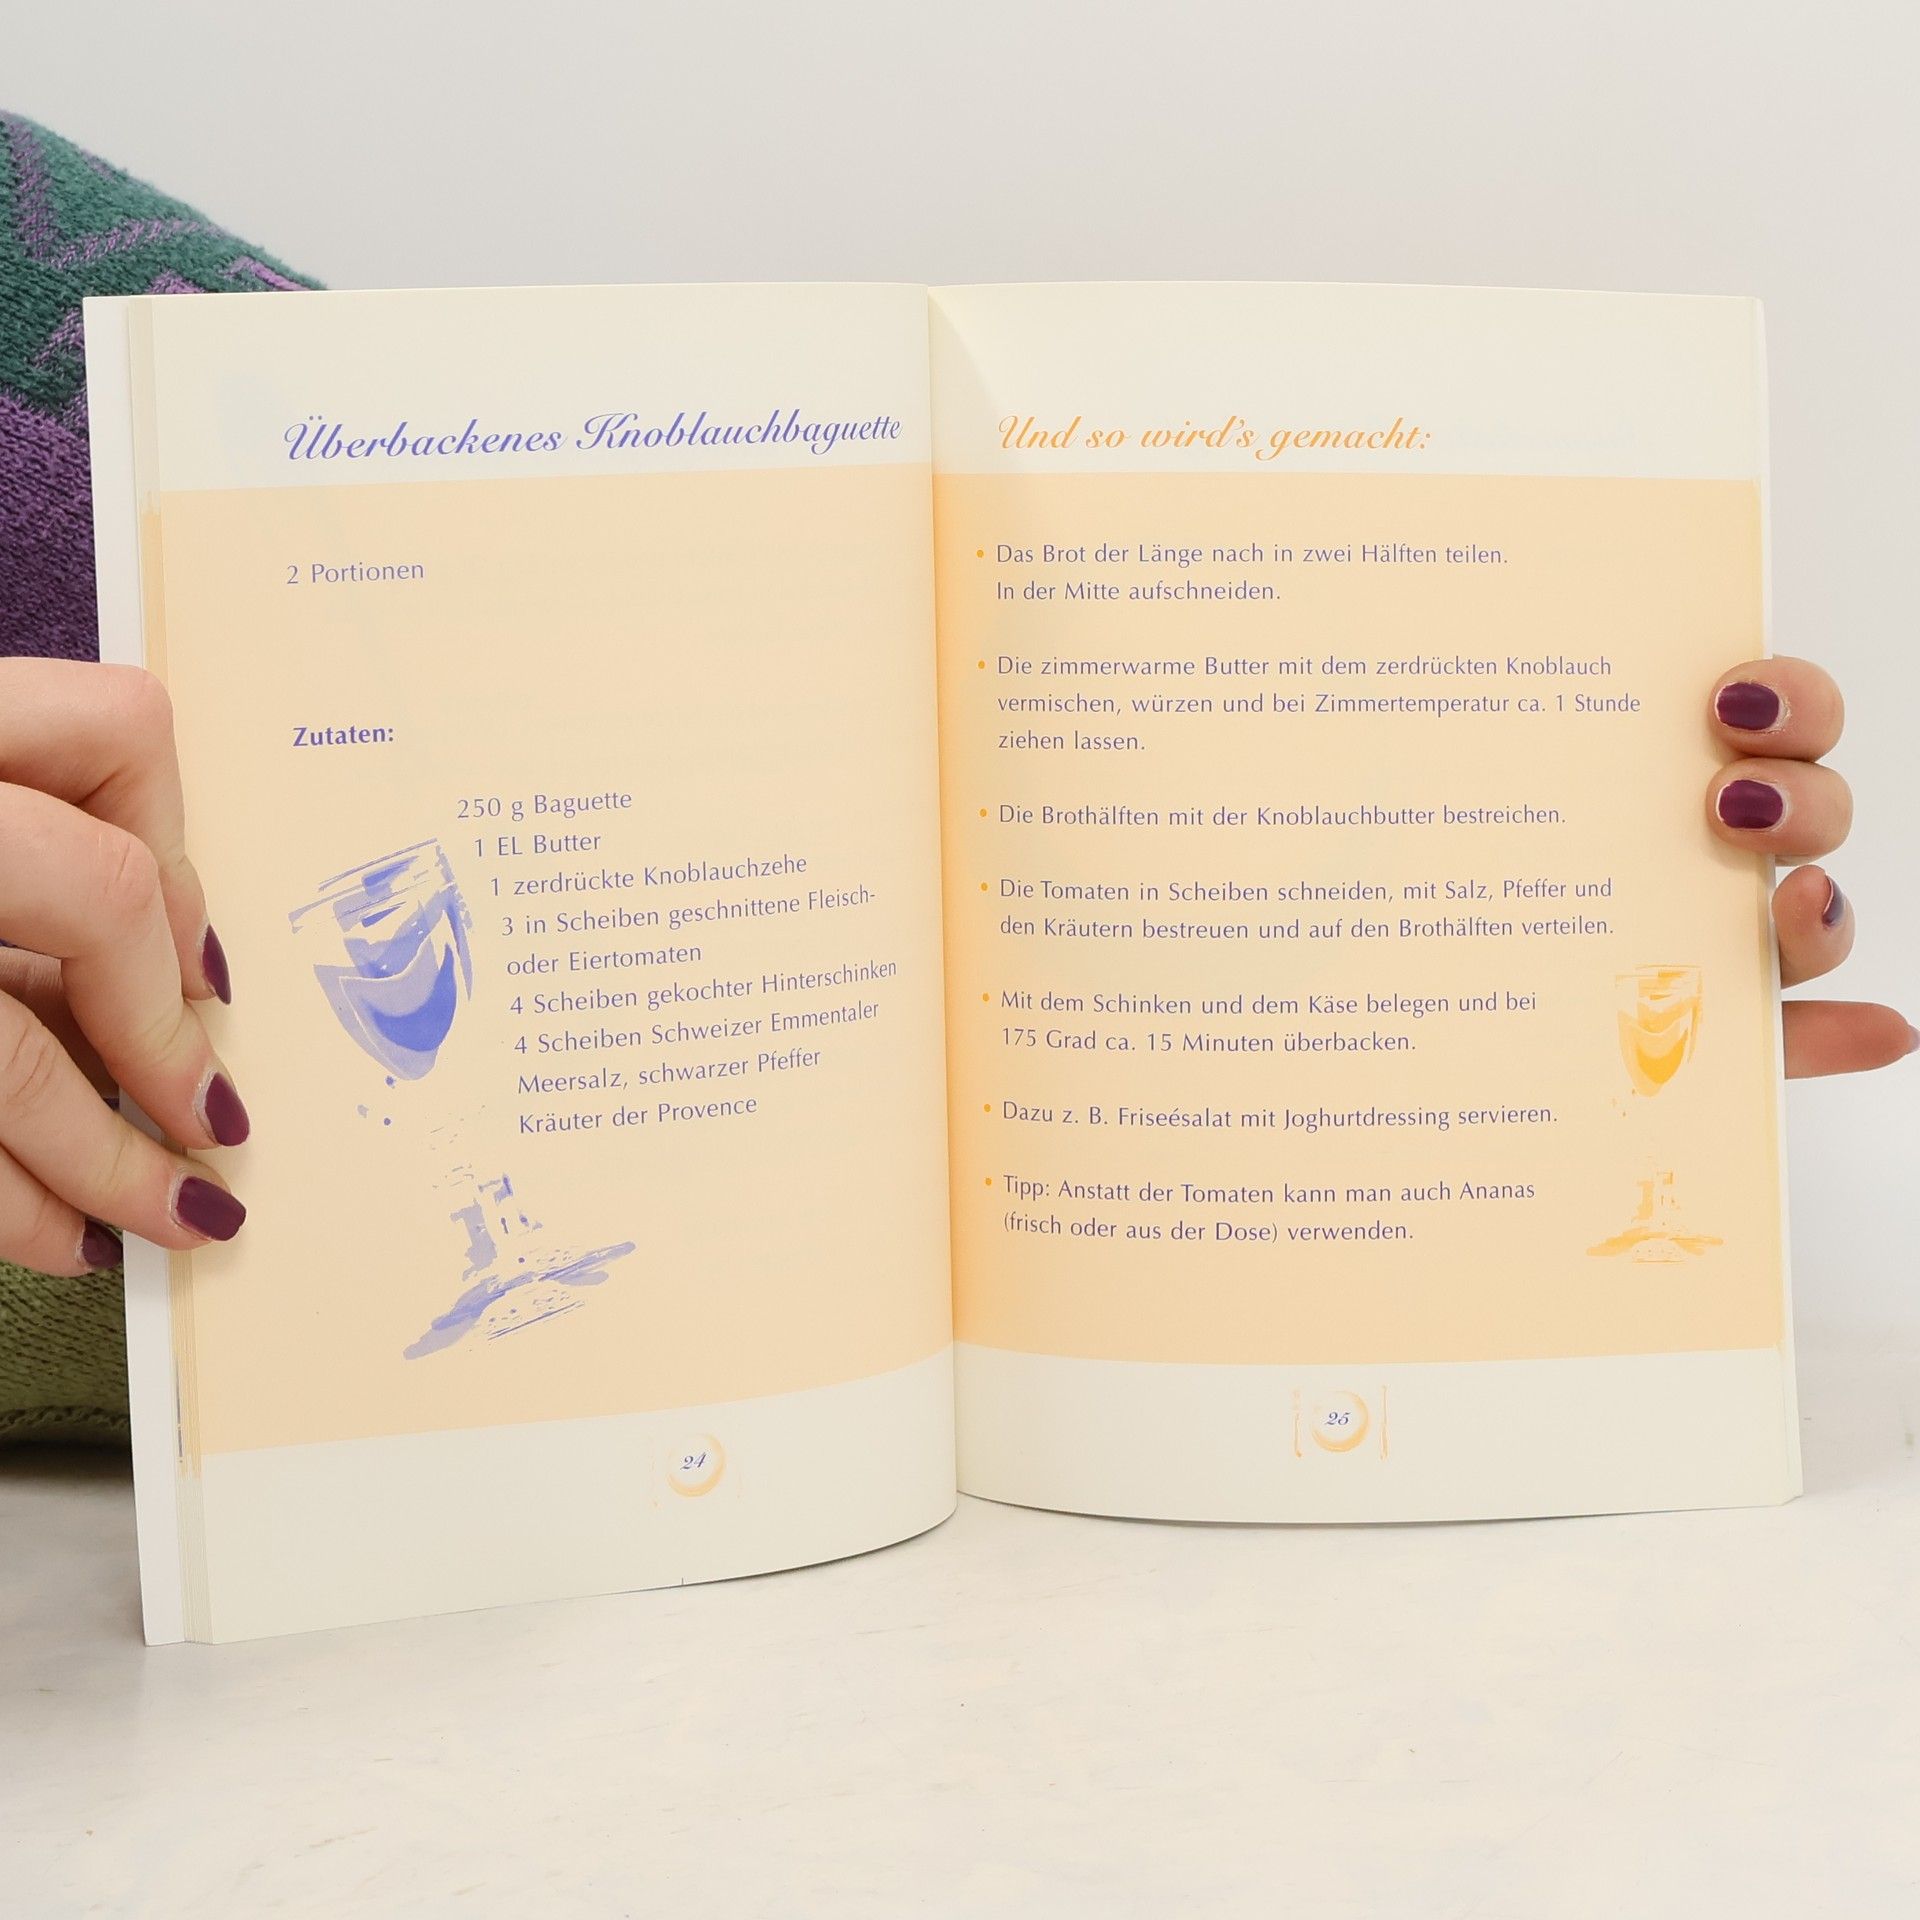 Überbackenes Knoblauchbaguette
2 Portionen
Zutaten:
250 g Baguette
1 EL Butter
1 zerdrückte Knoblauchzehe
3 in Scheiben geschnittene Fleisch-
oder Eiertomaten
4 Scheiben gekochter Hinterschinken
4 Scheiben Schweizer Emmentaler
Meersalz, schwarzer Pfeffer
Kräuter der Provence
24
Und so wird's gemacht:
• Das Brot der Länge nach in zwei Hälften teilen.
In der Mitte aufschneiden.
• Die zimmerwarme Butter mit dem zerdrückten Knoblauch
vermischen, würzen und bei Zimmertemperatur ca. 1 Stunde
ziehen lassen.
• Die Brothälften mit der Knoblauchbutter bestreichen.
• Die Tomaten in Scheiben schneiden, mit Salz, Pfeffer und
den Kräutern bestreuen und auf den Brothälften verteilen.
• Mit dem Schinken und dem Käse belegen und bei
175 Grad ca. 15 Minuten überbacken.
• Dazu z. B. Friseésalat mit Joghurtdressing servieren.
• Tipp: Anstatt der Tomaten kann man auch Ananas
(frisch oder aus der Dose) verwenden.
25